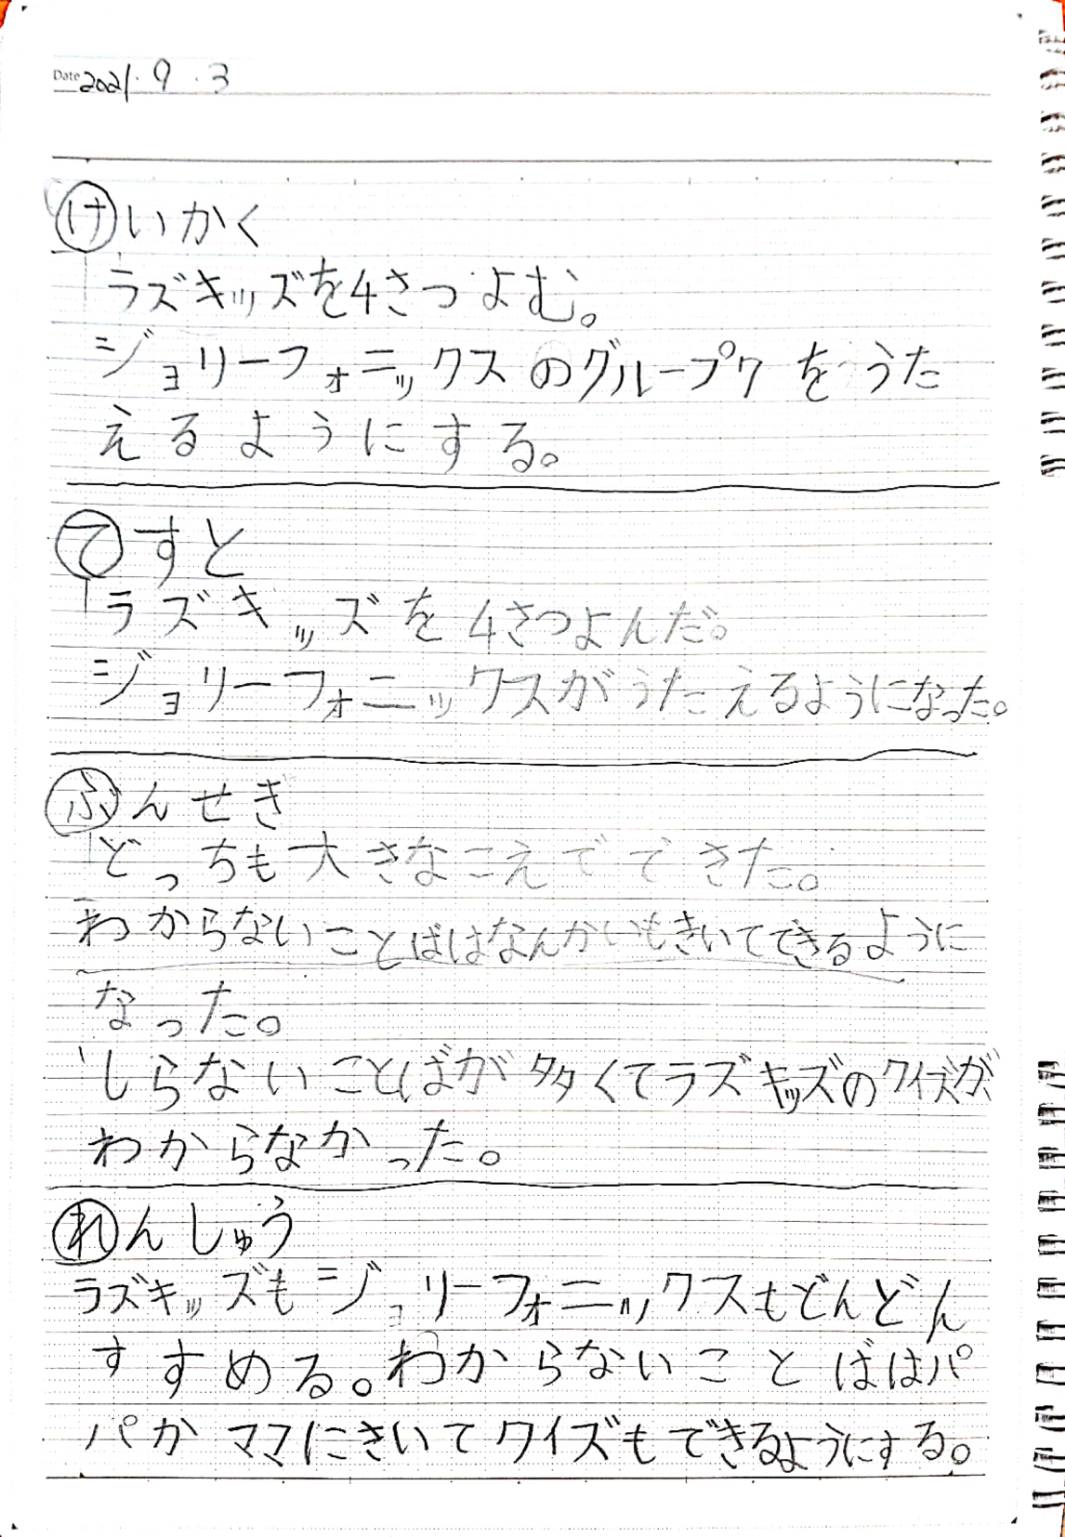 Date 2021.9.3
けいかく
ラズキッズを4さつよむ。
ジョリーフォニックスのグループ7をうた
えるようにする。
てすと
ラズキッズを4さつよんだ。
ジョリーフォニックスがうたえるようになった。
ぶんせき
どっちも大きなこえでできた。
わからないことばはなんかいもきいてできるように
なった。
しらないことばが多くてラズキッズのクイズが
わからなかった。
れんしゅう
ラズキッズもジョリーフォニックスもどんどん
すすめる。わからないことばはパ
パかママにきいてクイズもできるようにする。